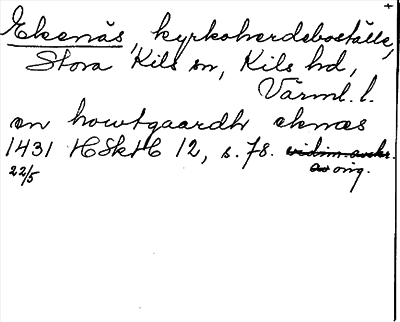 +
Ekenäs, kyrkoherdeboställe,
Stora Kils sn, Kils hd,
Värml. l.
en howtgaardh eknæs
1431 HSkH 12, s. 78. vidim. avskr.
22/5 av orig.